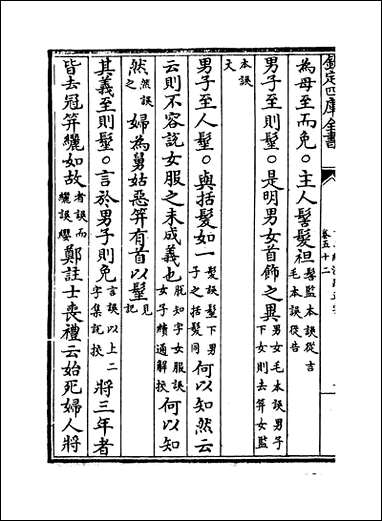 欽定四庫全書
卷五十二
為母至而免○主人髺髮袒髺監本誤從言毛本誤從告
男子至則髽○是明男女首飾之異男女毛本誤男子下女則去笄女監
本誤天
男子至人髽○與括髮如一髮誤髽下男子之括髮同何以知然云
云則不容說女服之未成義也脱知字女服誤女子續通解挍何以知
然然誤之婦為舅姑惡笄有首以髽見記
其義至則髽○言於男子則免言誤以上二字集說挍將三年者
皆去冠笄纚如故者誤而纚誤纓鄭註士喪禮云始死婦人將